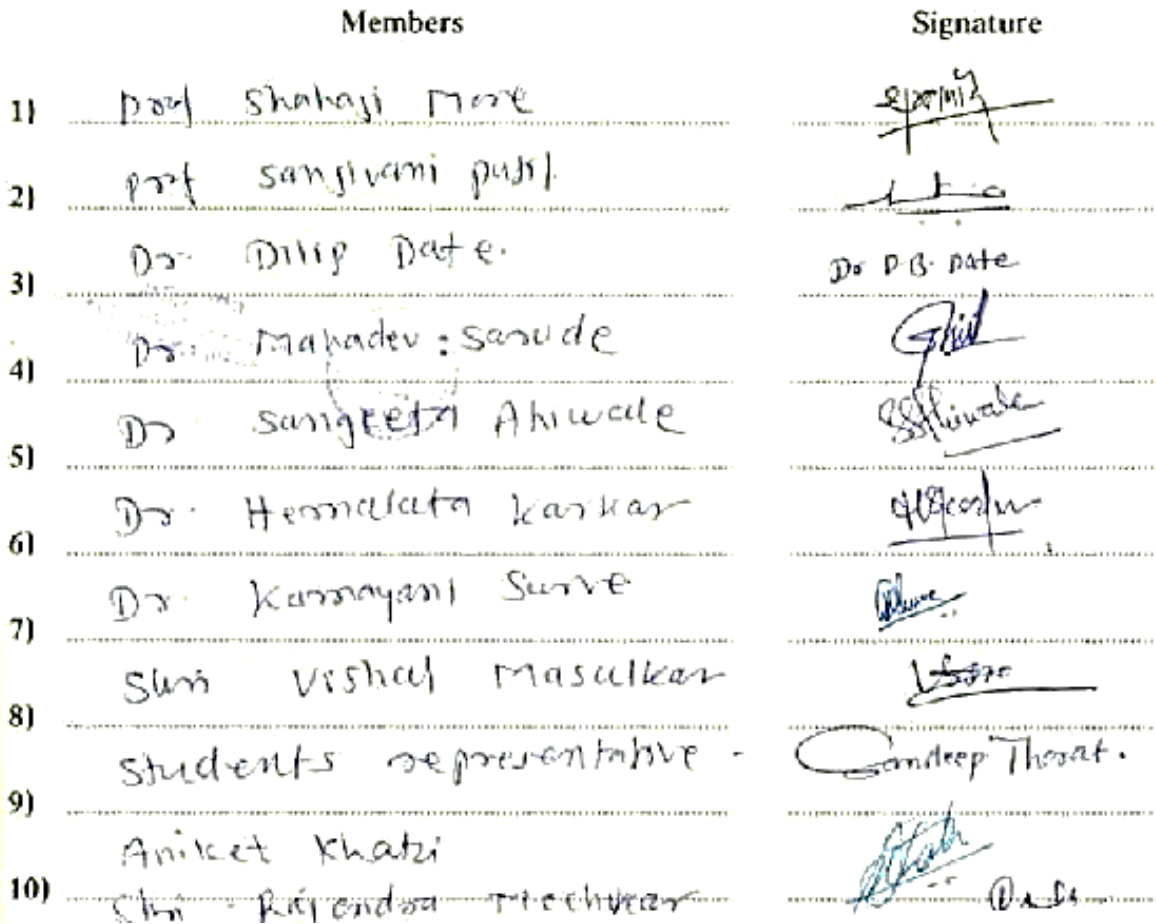 Members Signature
1) Prof Shahaji More
2) Prof Sanjivani Patil
3) Dr. Dilip Date. Dr D.B. Date
4) Dr. Mahadev Sarode
5) Dr Sangeeta Ahiwale SSAhiwale
6) Dr. Hemalata Karkar
7) Dr. Kamayani Surve
8) Shri Vishal Masulkar
9) Students representative - Sandeep Thorat.
Aniket Khatri
10) Shri Rajendra